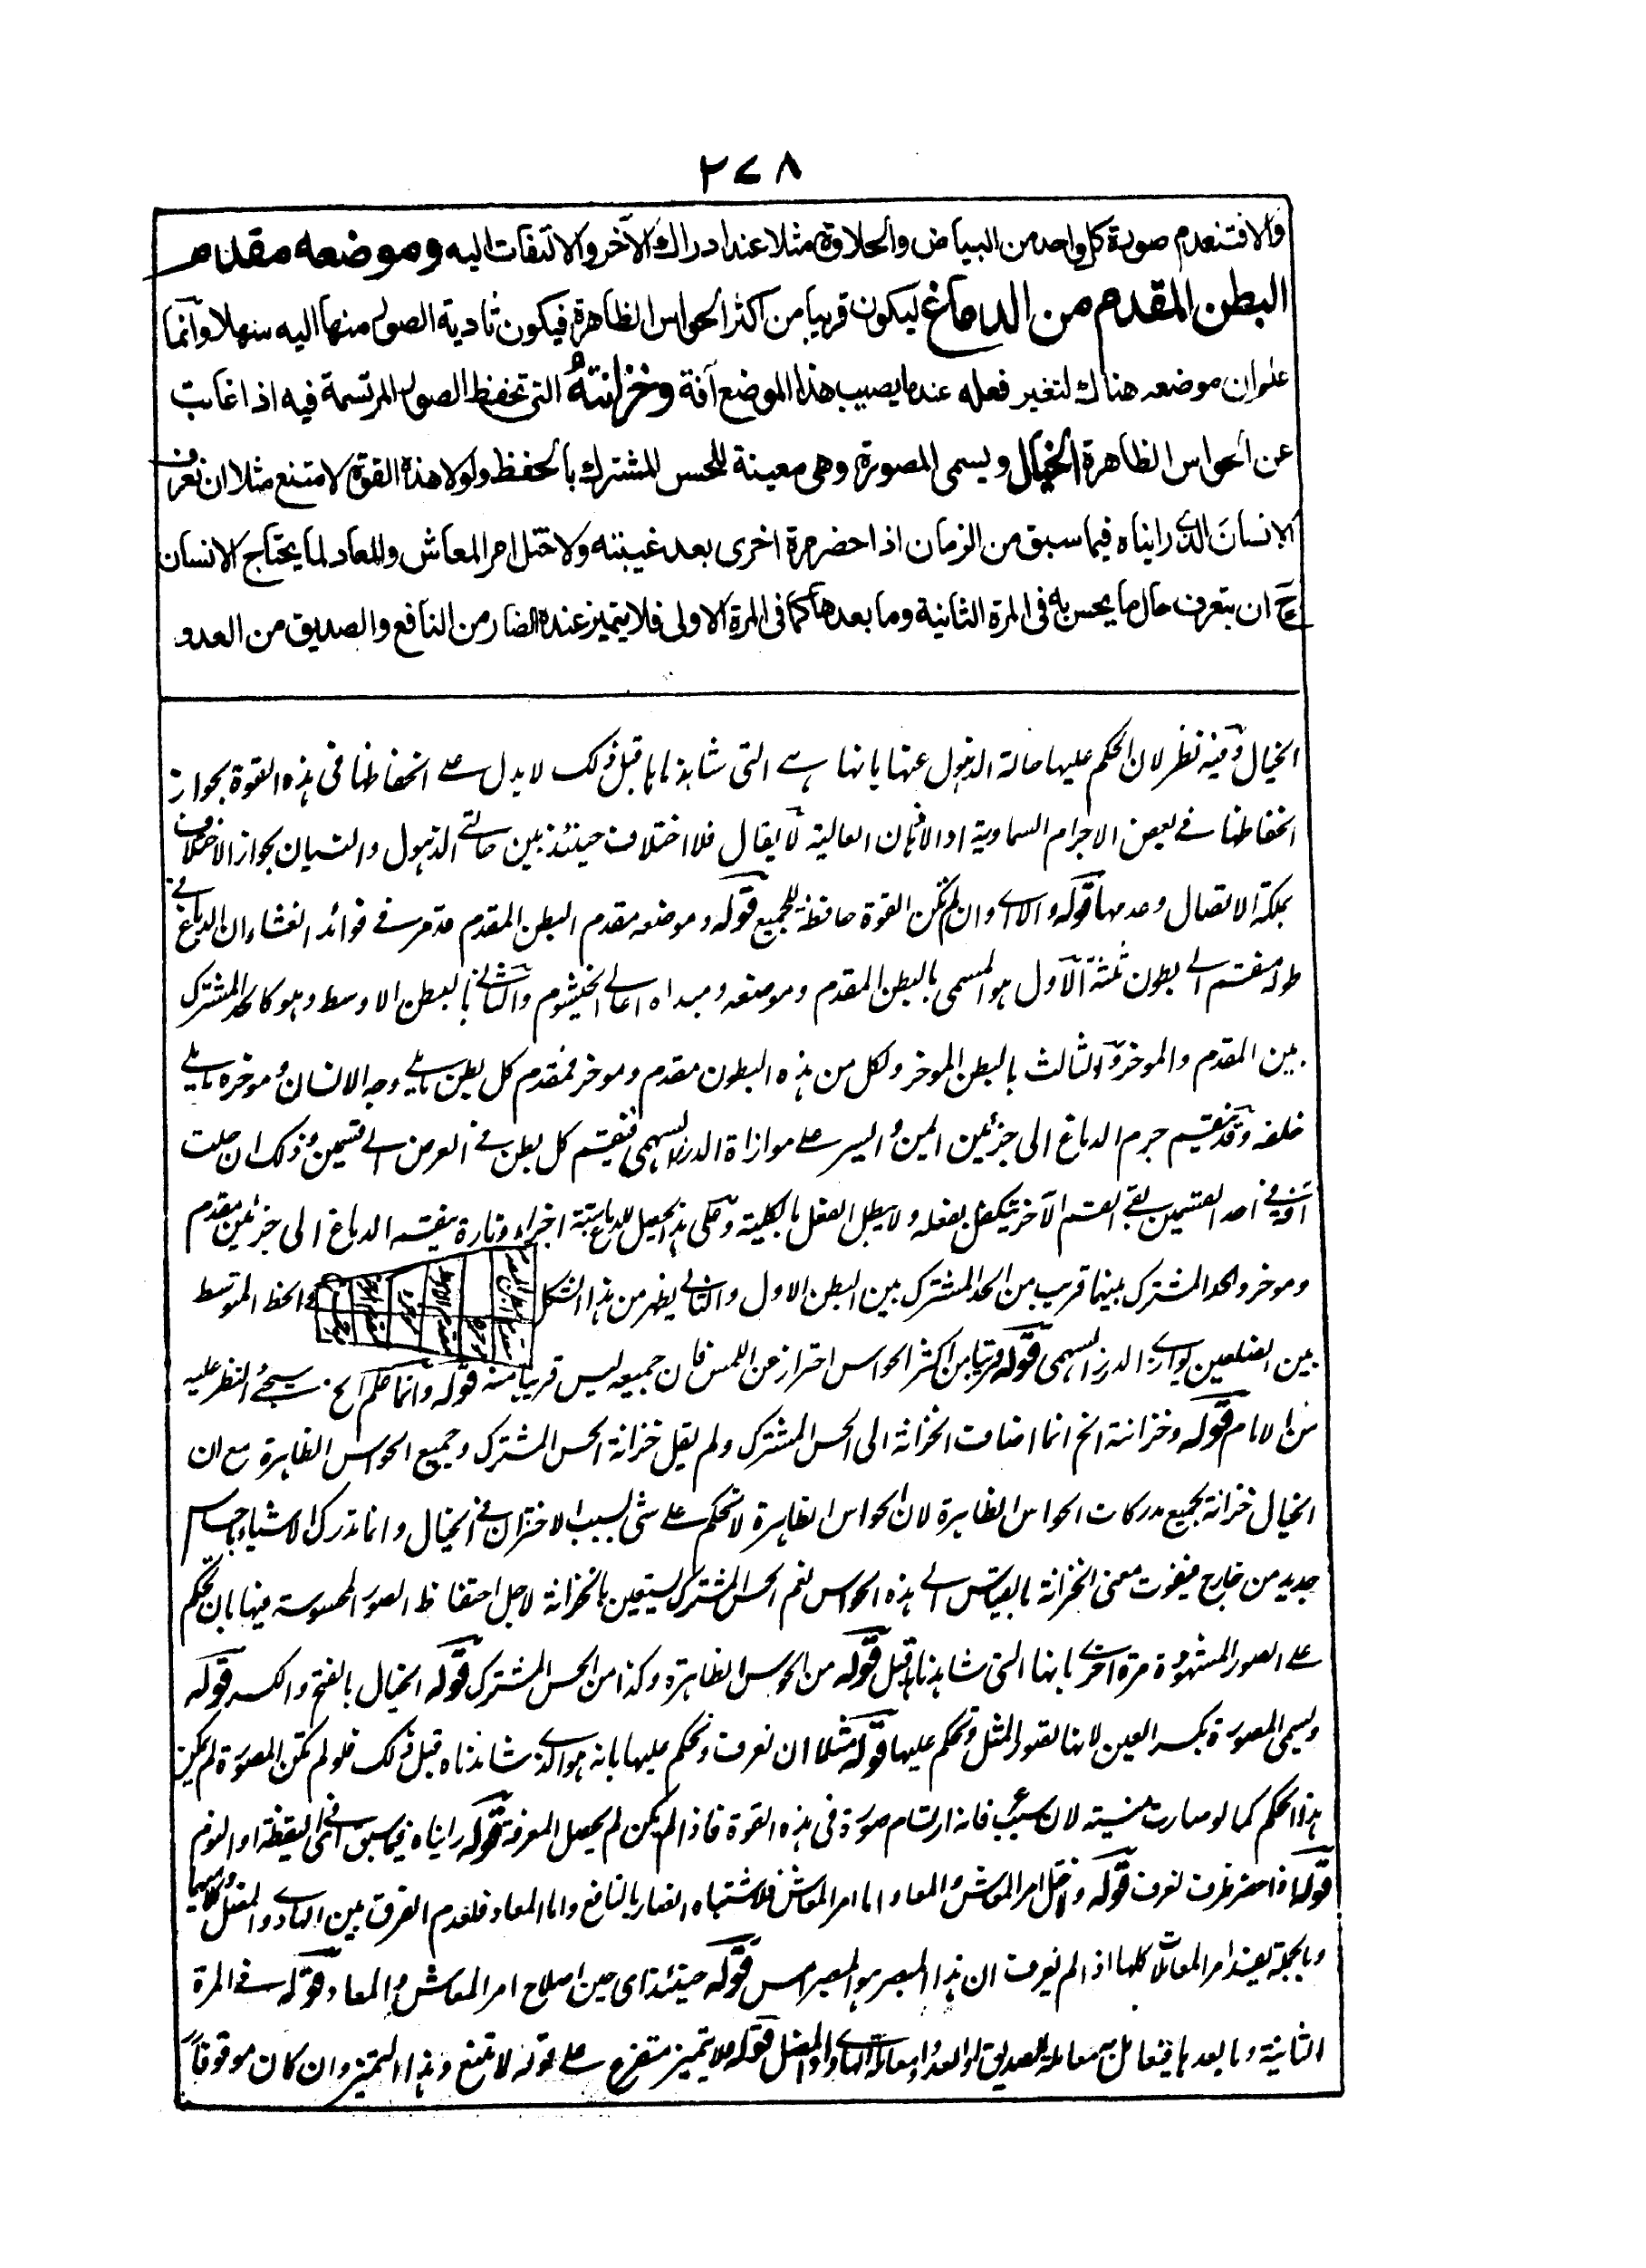 ٢٧٨
والا فتنعدم صورة كل واحد من البياض والحلاوة مثلا عند ادراك الآخر والالتفات اليه وموضعه مقدم
البطن المقدم من الدماغ ليكون قريبا من اكثر الحواس الظاهرة فيكون تادية الصور منها اليه سهلا وانما
علم ان موضعه هناك لتغير فعله عندما يصيب هذا الموضع آفة وخزانته التى تحفظ الصور المرتسمة فيه اذا غابت
عن الحواس الظاهرة الخيال ويسمى المصورة وهى معينة للحس المشترك بالحفظ ولولا هذه القوة لامتنع مثلا ان نعرف
الانسان الذى رايناه فيما سبق من الزمان اذا حضر مرة اخرى بعد غيبته ولاختل امر المعاش والمعاد لما يحتاج الانسان
ح ان يتعرف حال ما يحس به فى المرة الثانية وما بعدها كما فى المرة الاولى فلا يتميز عنده الضار من النافع والصديق من العدو
الخيال وفيه نظر لان الحكم عليها حالة الذهول عنها بانها هى التى شاهدناها قبل ذلك لا يدل على انحفاظها فى هذه القوة بجواز
انحفاظها فى بعض الاجرام السماوية او الاذهان العالية لا يقال فلا اختلاف حينئذ بين حالتى الذهول والنسيان بجواز الاختلاف
بملكة الاتصال وعدمها قوله والا اى وان لم تكن القوة حافظة للجميع قوله وموضعه مقدم البطن المقدم قد مر فى فوائد الغشاء ان الدماغ فى
طوله منقسم الى بطون ثلثة الاول هو المسمى بالبطن المقدم وموضعه ومبداه اعالى الخيشوم والثانى بالبطن الاوسط وهو كالحد المشترك
بين المقدم والموخر والثالث بالبطن الموخر ولكل من هذه البطون مقدم وموخر فمقدم كل بطن ما يلى وجه الانسان وموخره ما يلى
خلفه وقد ينقسم جرم الدماغ الى جزئين ايمن وايسر على موازاة الدرز السهمى فينقسم كل بطن فى العرض الى قسمين وذلك ان حلت
آفة فى احد القسمين بقى القسم الآخر يتكفل بفعله ولا يبطل الفعل بالكلية وعلى هذا يحصل للدماغ ستة اجزاء وتارة ينقسم الدماغ الى جزئين مقدم
وموخر والحد المشترك بينهما قريب من الحد المشترك بين البطن الاول والثانى يظهر من هذا الشكل والخط المتوسط
بين الضلعين يوازى الدرز السهمى قوله قريبا من اكثر الحواس احتراز عن اللمس فان جميعه ليس قريبا منه قوله وانما علم الخ سيجئ النظر عليه
من الامام قوله وخزانته الخ انما اضاف الخزانة الى الحس المشترك ولم يقل خزانة الحس المشترك وجميع الحواس الظاهرة مع ان
الخيال خزانة لجميع مدركات الحواس الظاهرة لان الحواس الظاهرة لا تحكم على شئ بسبب الاختزان فى الخيال وانما تدرك الاشياء باحساس
جديد من خارج فيفوت معنى الخزانة بالقياس الى هذه الحواس نعم الحس المشترك يستعين بالخزانة لاجل احتفاظ الصور المحسوسة فيها بان يحكم
على الصور المشهودة مرة اخرى بانها التى شاهدناها قبل قوله من الحواس الظاهرة وكذا من الحس المشترك قوله الخيال بالفتح والكسر قوله
ويسمى المصورة بكسر العين لانها تصور المثل وتحكم عليها قوله مثلا ان نعرف ونحكم عليها بانه هو الذى شاهدناه قبل ذلك فلو لم تكن المصورة لم يكن
هذا الحكم كما لو صارت منسية لان سبب فانه ارتسام صورة فى هذه القوة فاذا لم يكن لم يحصل المعرفة قوله رايناه فيما سبق اى فى اليقظة او النوم
قوله اذا حضر ظرف نعرف قوله ولاختل امر المعاش والمعاد اما امر المعاش فلاشتباه الضار بالنافع واما المعاد فلعدم الفرق بين الهادى والمضل
وبالجملة يفسد امر المعاملات كلها اذا لم نعرف ان هذا المبصر هو المبصر امس قوله حينئذ اى حين اصلاح امر المعاش والمعاد قوله فى المرة
الثانية وما بعدها فيتعامل معاملة الصديق او العدو او معاملة الهادى او المضل قوله فلا يتميز متفرع على قوله لامتنع وهذا التميز وان كان موقوفا